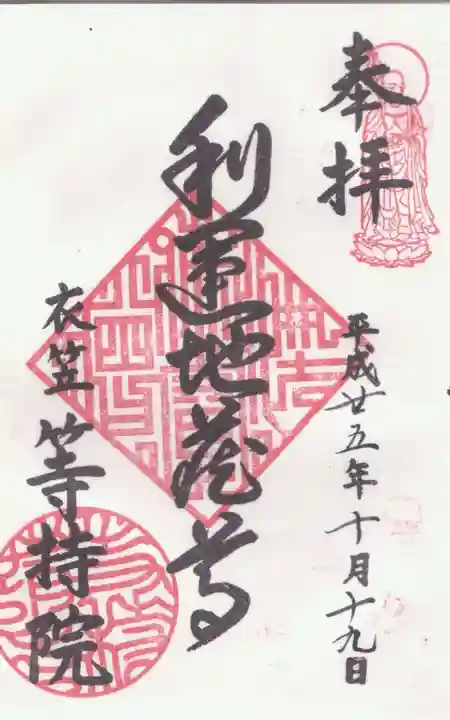 奉拝
平成廿五年十月十九日
利運地蔵尊
衣笠 等持院